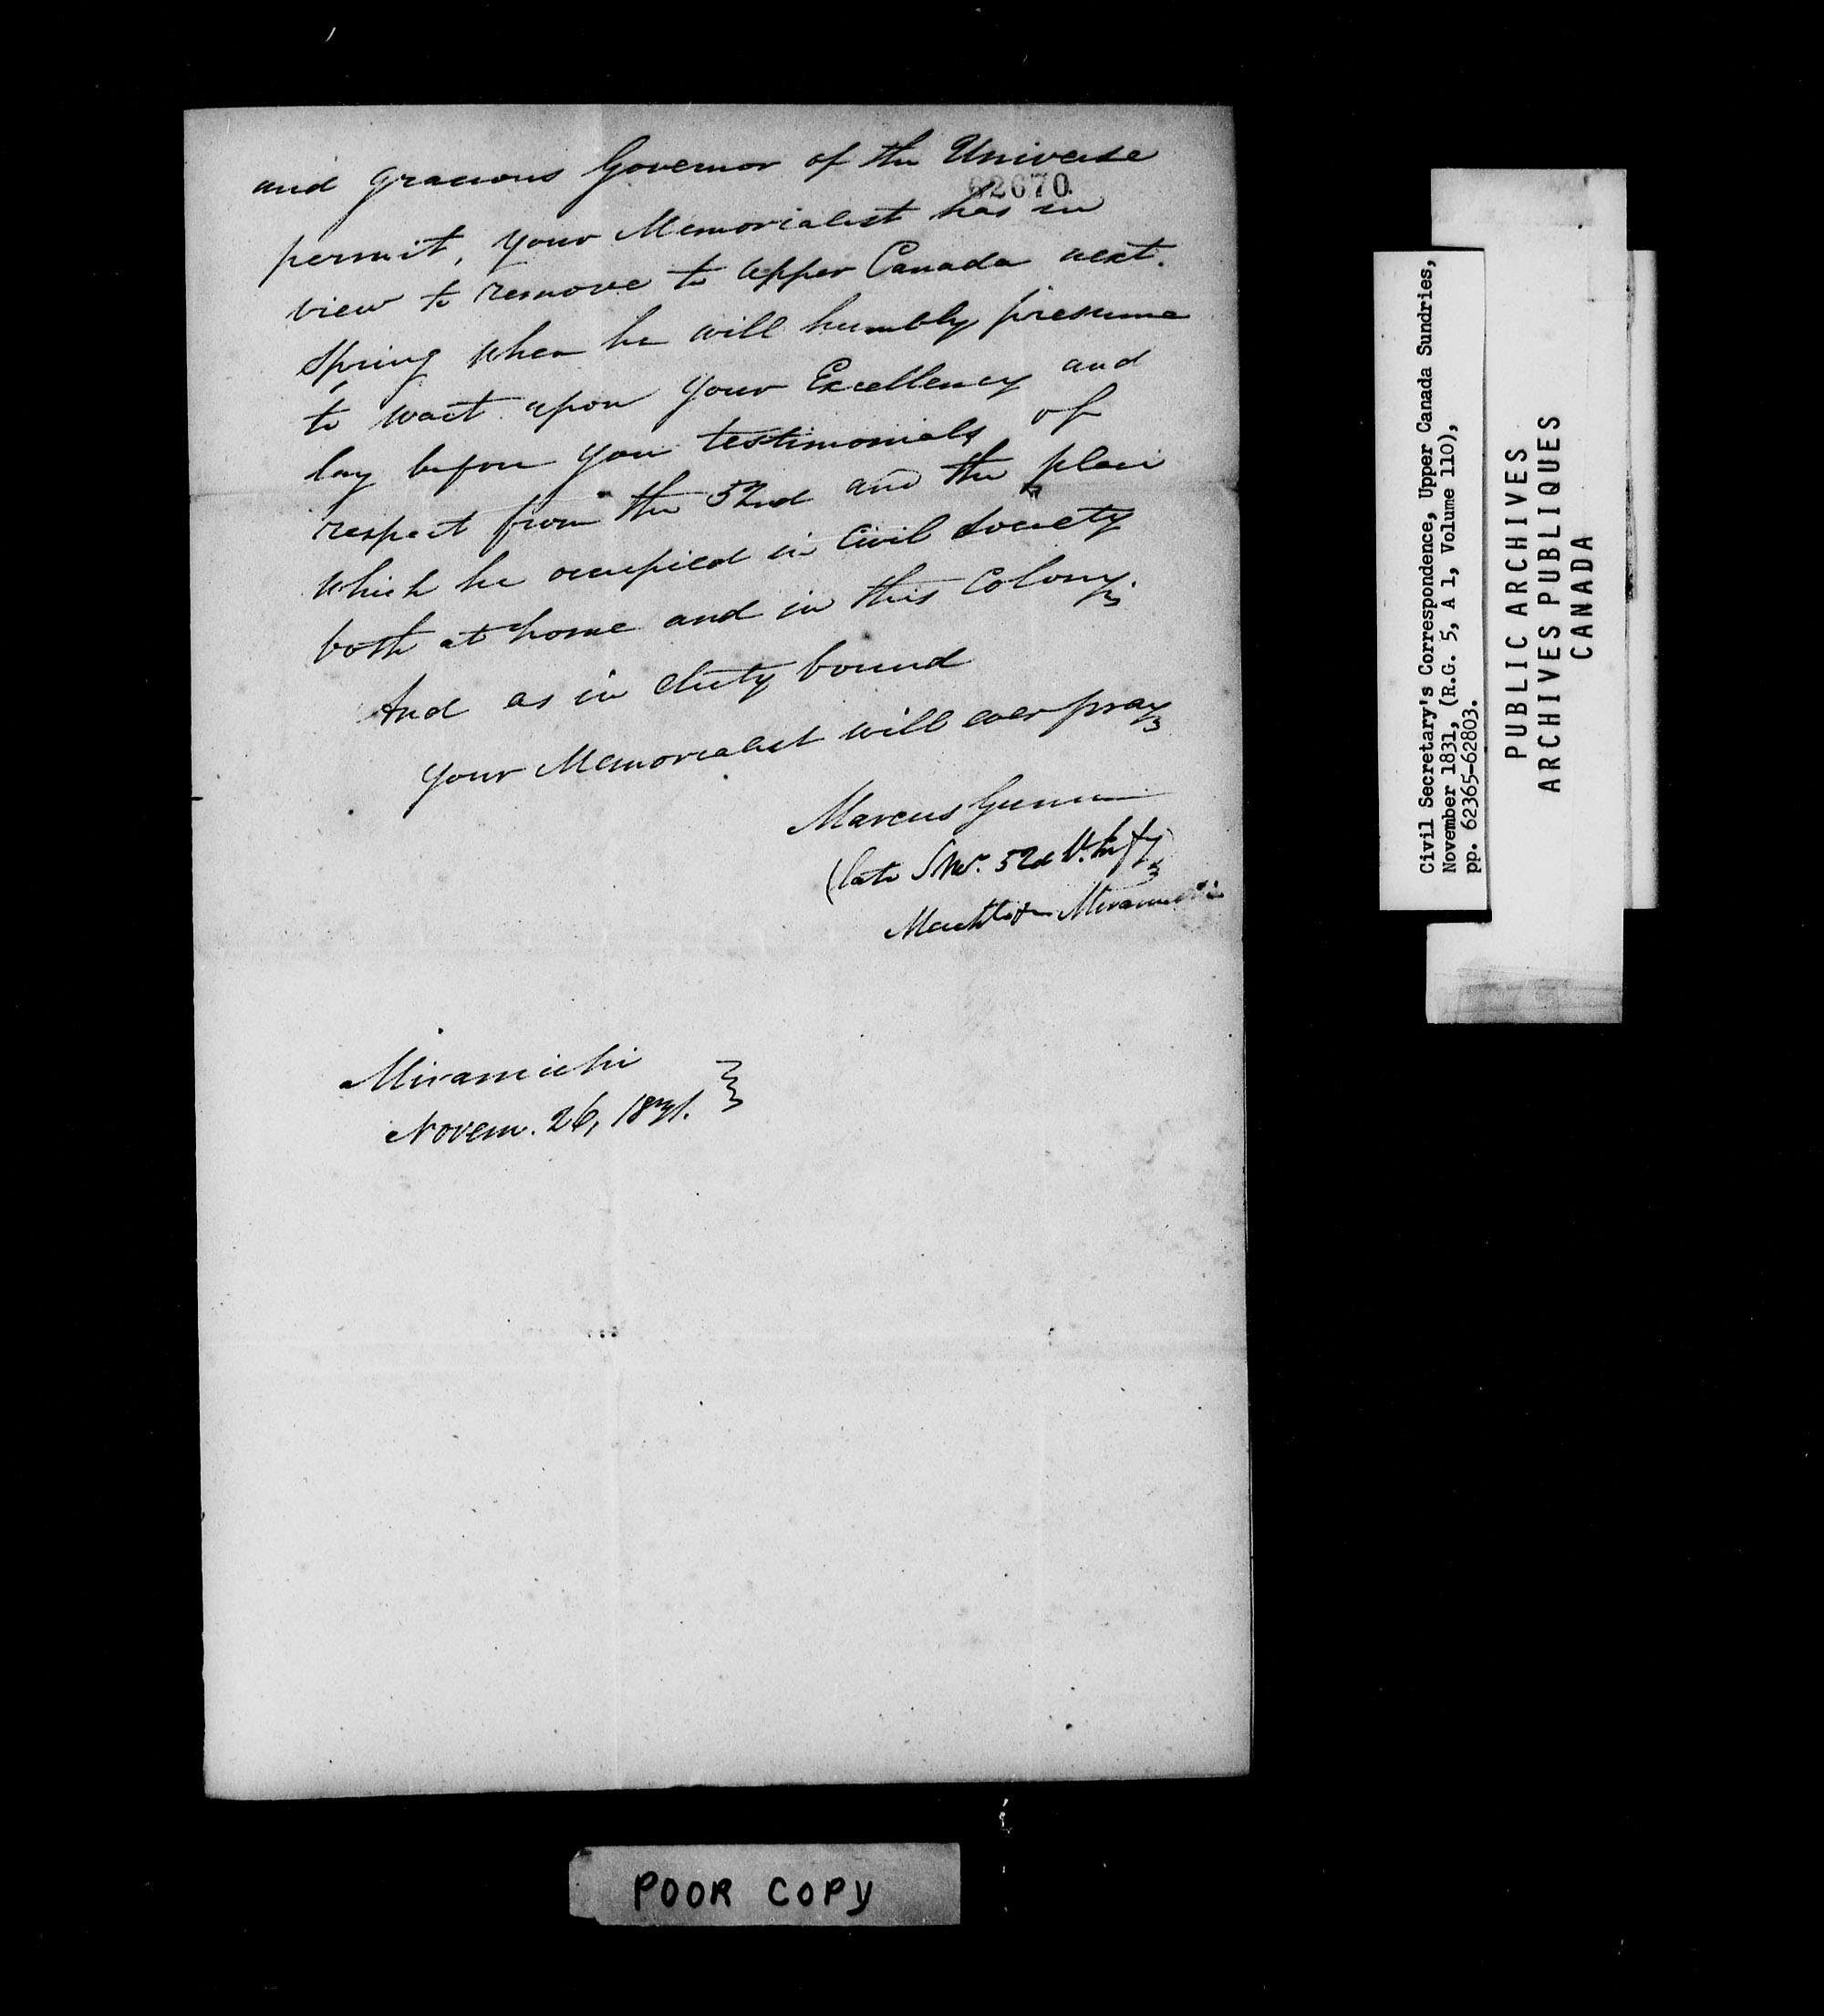 and gracious Governor of the Universe
62670
permit, your Memorialist has in
view to remove to Upper Canada next.
Spring when he will humbly presume
to wait upon your Excellency and
lay before you testimonials of
respect from the 52nd and the place
which he occupied in Civil Society
both at home and in this Colony.
And as in duty bound
your Memorialist will ever pray
Marcus Gunn
(late 52d
Miramichi
Miramichi
Novem. 26, 1831.
Civil Secretary's Correspondence, Upper Canada Sundries,
November 1831, (R.G. 5, A 1, Volume 110),
pp. 62365-62803.
PUBLIC ARCHIVES
ARCHIVES PUBLIQUES
CANADA
POOR COPY